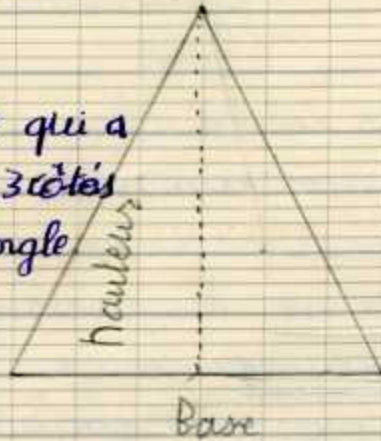 qui a
3 côtés
ngle
hauteur
Base